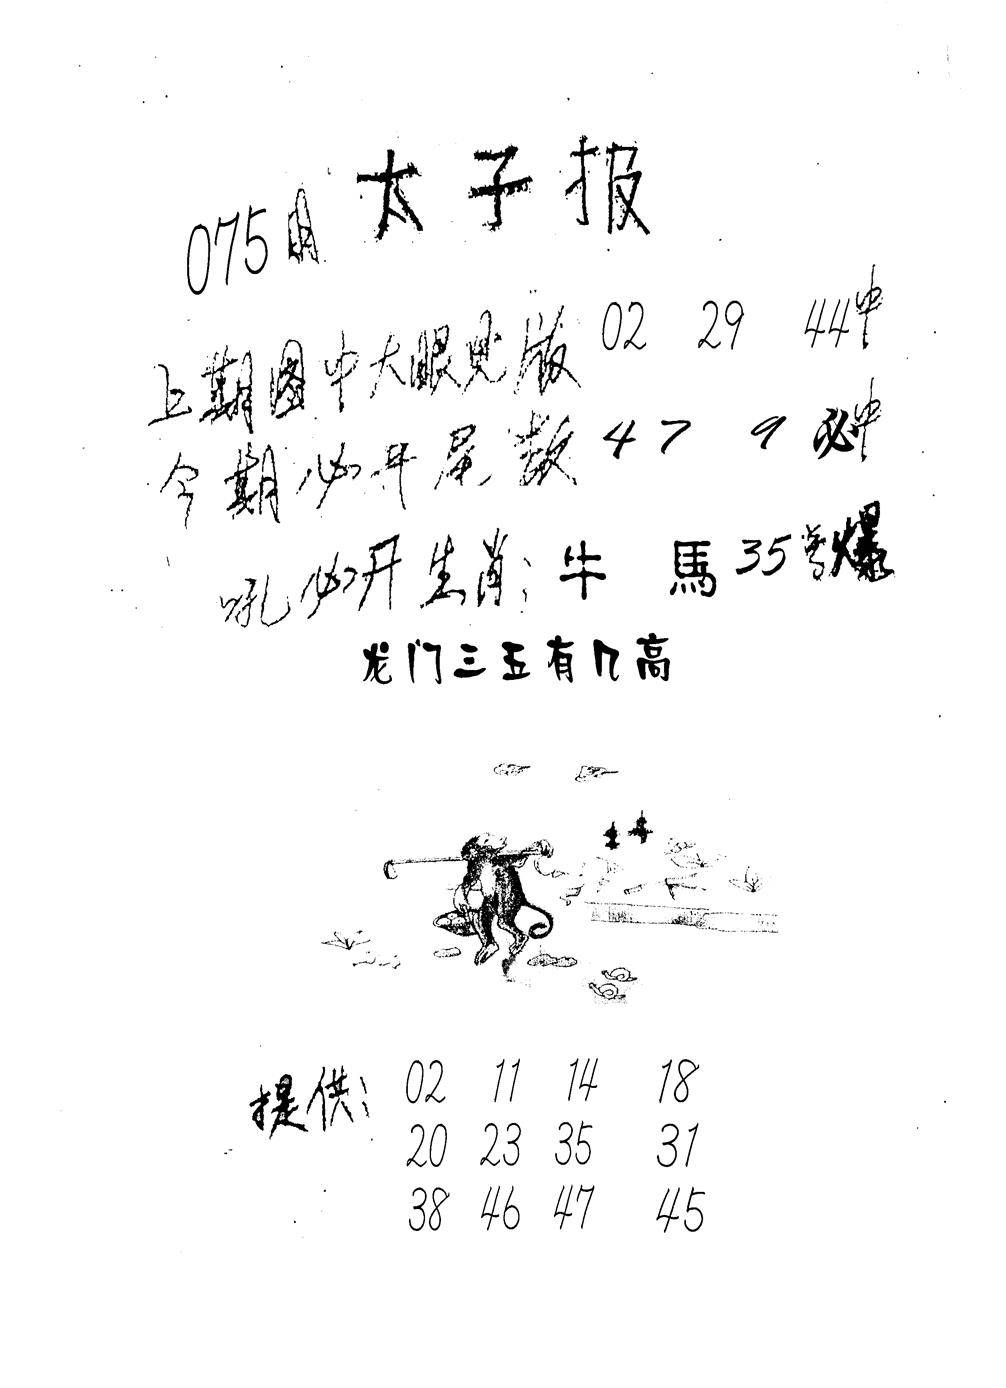 太子报
075期
上期图中大眼见版 02 29 44中
今期必开尾数 4 7 9 必中
吼必开生肖: 牛 馬 35号爆
龙门三五有几高
提供: 02 11 14 18
20 23 35 31
38 46 47 45